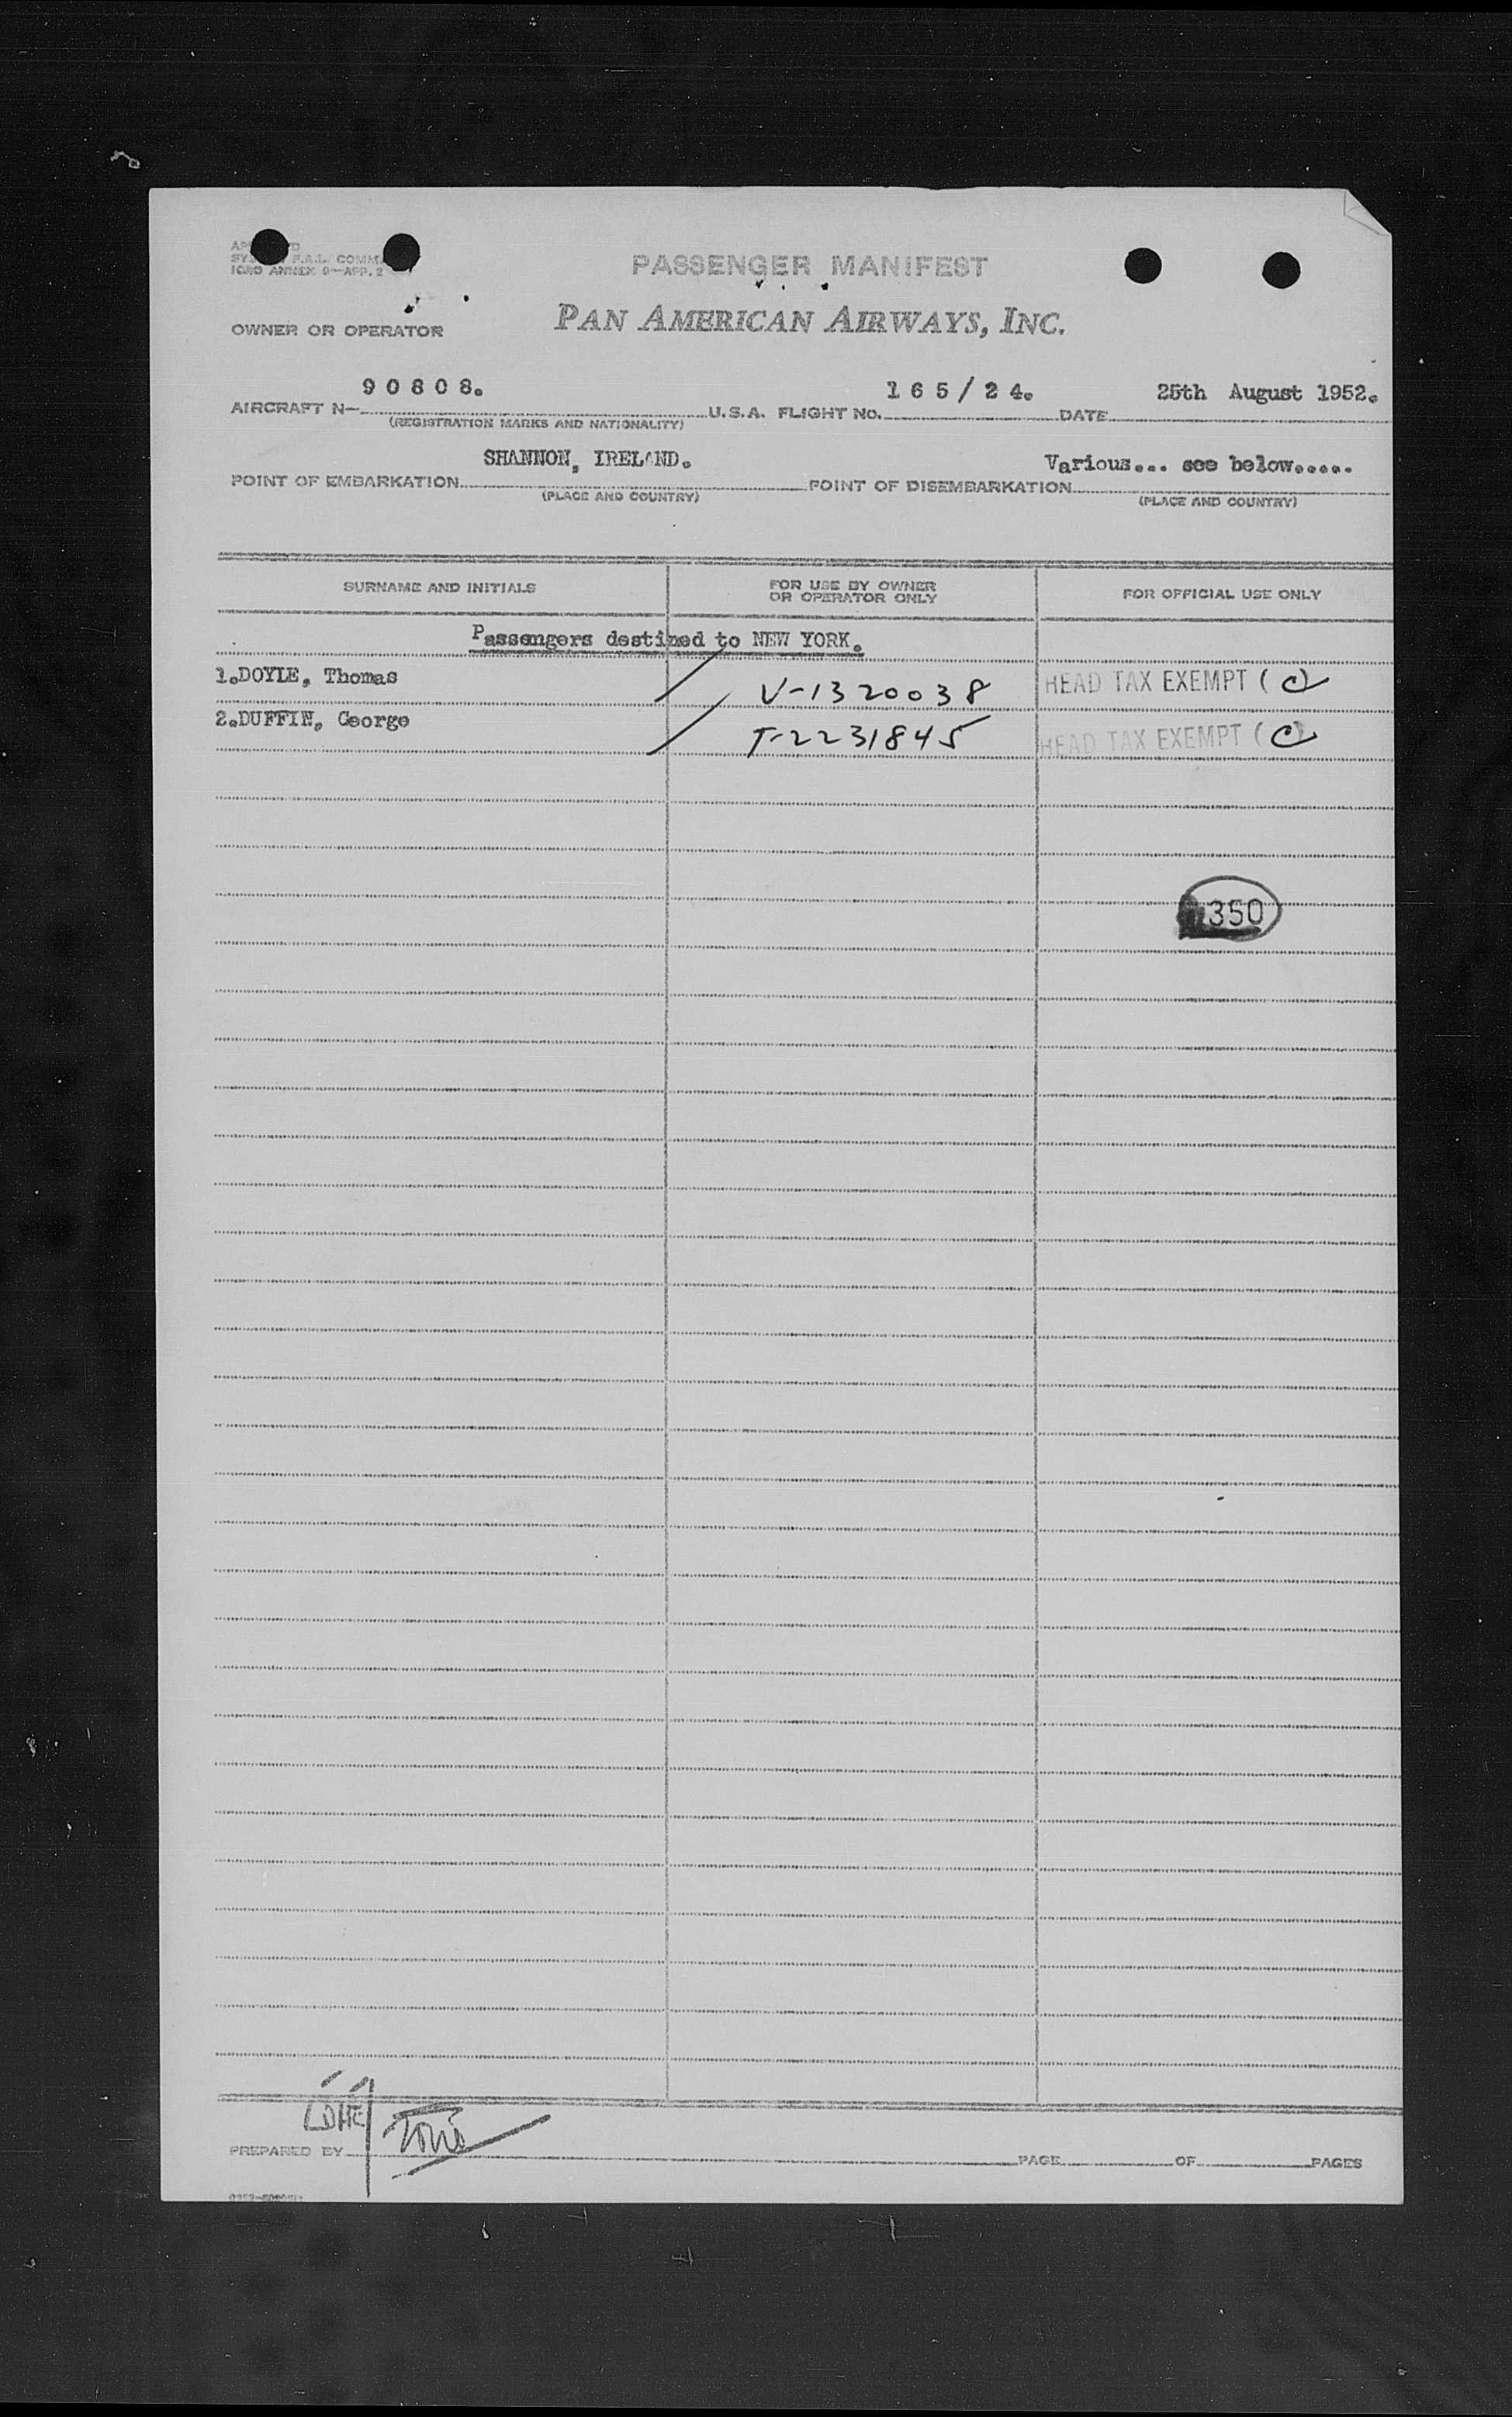 PASSENGER MANIFEST
ICAO ANNEX 9—APP. 2
OWNER OR OPERATOR
PAN AMERICAN AIRWAYS, INC.
90808. 165/24. 25th August 1952.
AIRCRAFT N— U.S.A. FLIGHT NO. DATE
(REGISTRATION MARKS AND NATIONALITY)
SHANNON, IRELAND. Various... see below.....
POINT OF EMBARKATION POINT OF DISEMBARKATION
(PLACE AND COUNTRY) (PLACE AND COUNTRY)
SURNAME AND INITIALS FOR USE BY OWNER OR OPERATOR ONLY FOR OFFICIAL USE ONLY
Passengers destined to NEW YORK.
1.DOYLE, Thomas V-1320038 HEAD TAX EXEMPT (C)
2.DUFFIN, George T-2231845 HEAD TAX EXEMPT (C)
350
PREPARED BY PAGE OF PAGES